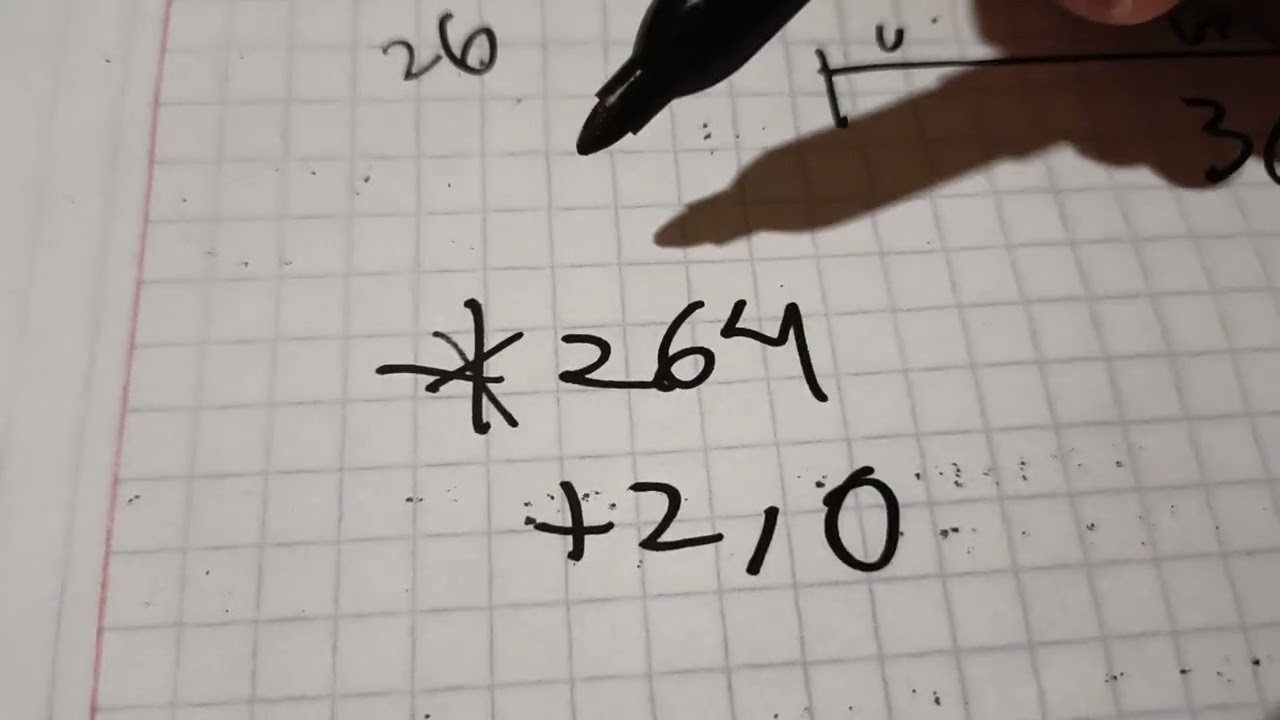 26
u
3
* 264
+2,0